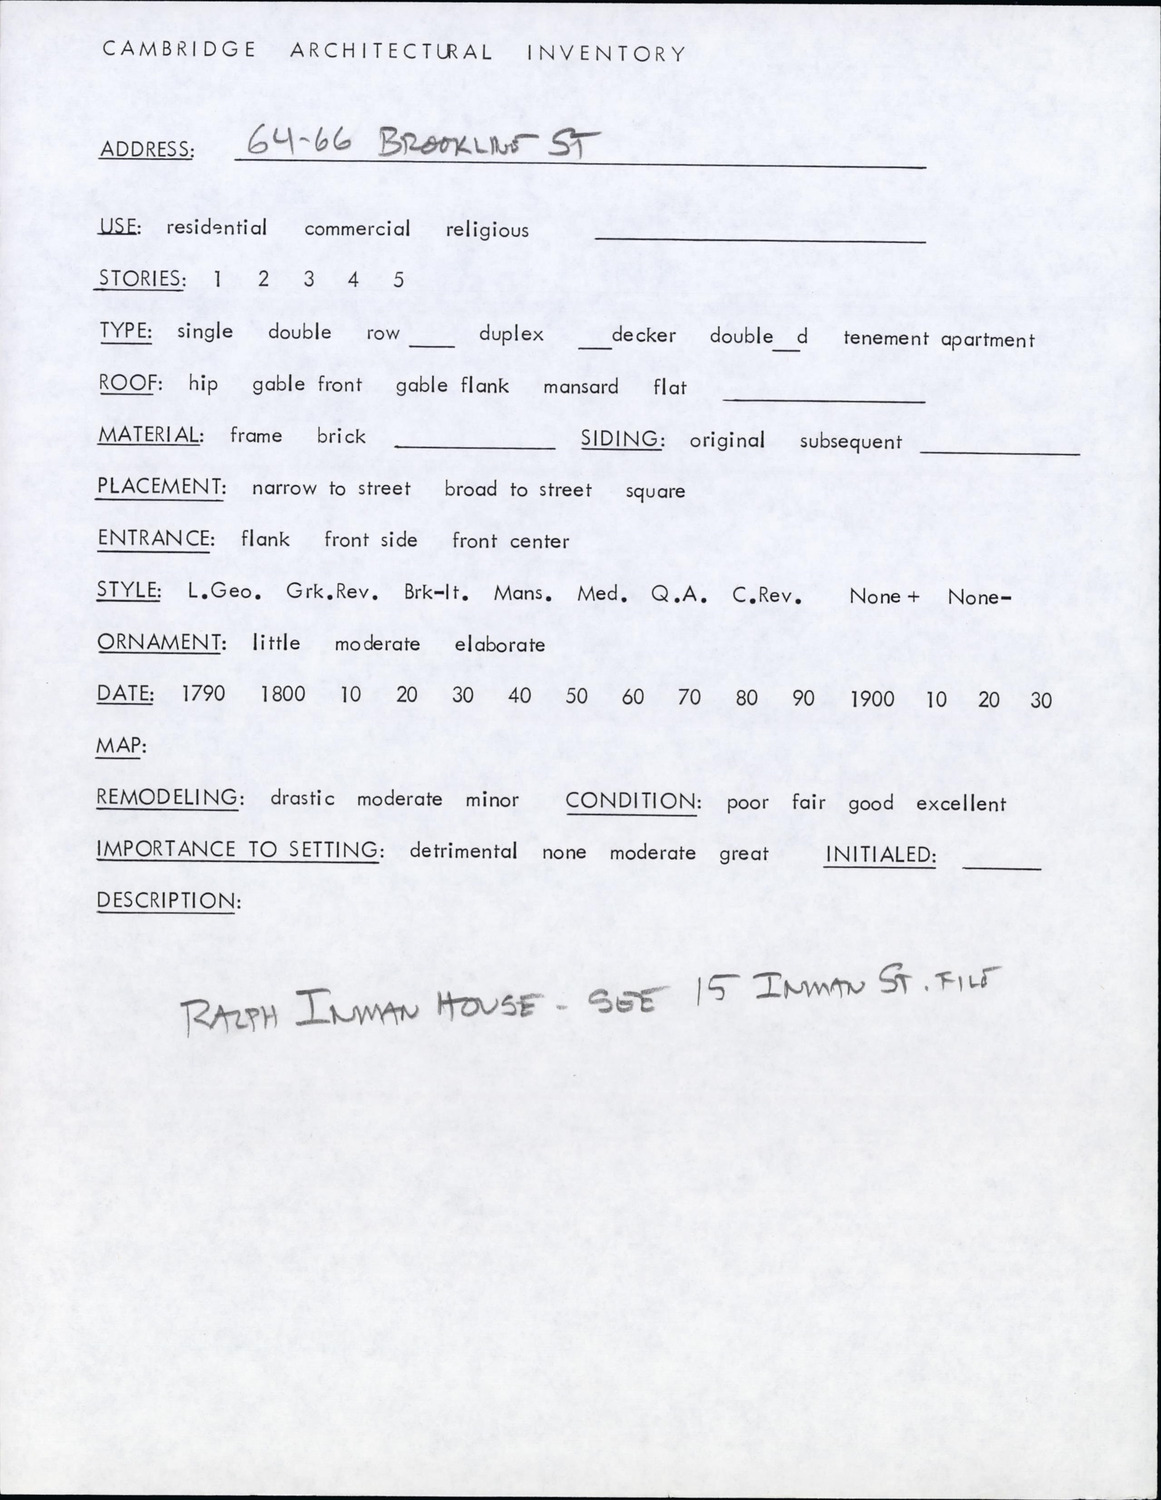 CAMBRIDGE ARCHITECTURAL INVENTORY
ADDRESS: 64-66 BROOKLINE ST
USE: residential commercial religious
STORIES: 1 2 3 4 5
TYPE: single double row ____ duplex ___decker double__d tenement apartment
ROOF: hip gable front gable flank mansard flat
MATERIAL: frame brick ____ SIDING: original subsequent ____
PLACEMENT: narrow to street broad to street square
ENTRANCE: flank front side front center
STYLE: L.Geo. Grk.Rev. Brk-It. Mans. Med. Q.A. C.Rev. None + None-
ORNAMENT: little moderate elaborate
DATE: 1790 1800 10 20 30 40 50 60 70 80 90 1900 10 20 30
MAP:
REMODELING: drastic moderate minor CONDITION: poor fair good excellent
IMPORTANCE TO SETTING: detrimental none moderate great INITIALED: ____
DESCRIPTION:
RALPH INMAN HOUSE - SEE 15 INMAN ST. FILE